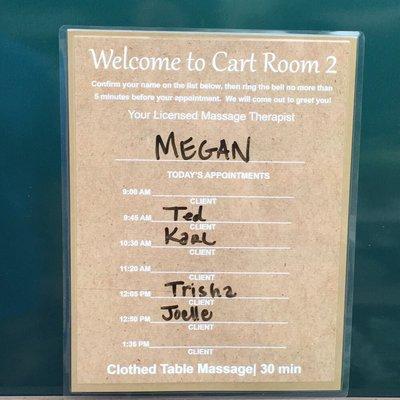 Welcome to Cart Room 2
Confirm your name on the list below, then ring the bell no more than
5 minutes before your appointment. We will come out to greet you!
Your Licensed Massage Therapist
MEGAN
TODAY'S APPOINTMENTS
9:00 AM
CLIENT
9:45 AM Ted
CLIENT
10:30 AM Karl
CLIENT
11:20 AM
CLIENT
12:05 PM Trisha
CLIENT
12:50 PM Joelle
CLIENT
1:35 PM
CLIENT
Clothed Table Massage| 30 min